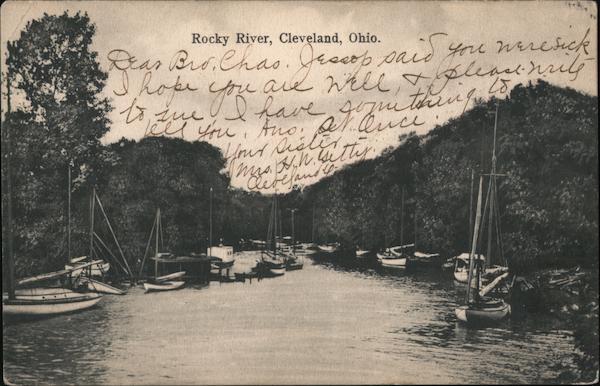 Rocky River, Cleveland, Ohio.
Dear Bro, Chas. Jessop said you were sick
I hope you are well, & please write
to me I have something to
tell you, Ans. at once.
your Sister
Mrs. H. W.
Cleveland O